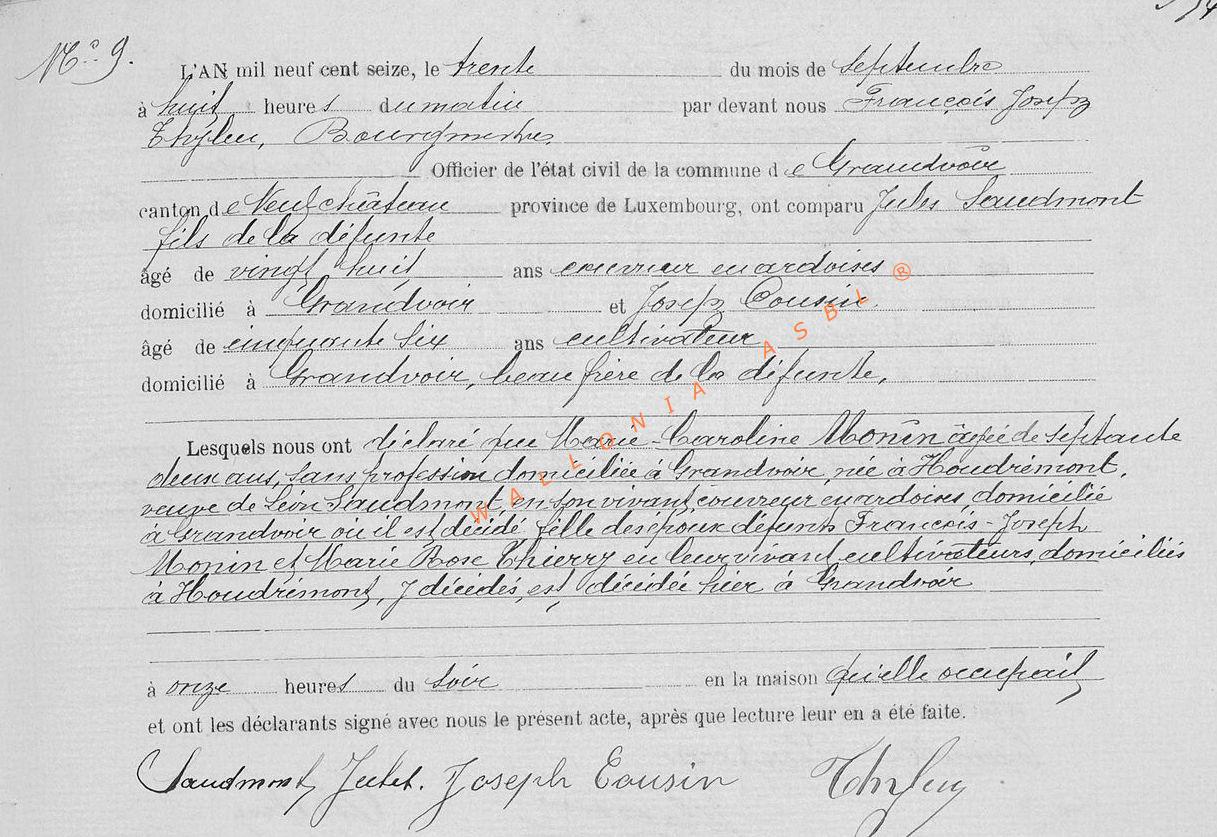 N° 9.
L'AN mil neuf cent seize, le trente du mois de septembre
à huit heures du matin par devant nous François Joseph
Bourgmestre,
Officier de l'état civil de la commune de Grandvoir
canton de Neufchâteau province de Luxembourg, ont comparu Jules Saudmont
fils de la défunte
âgé de vingt huit ans couvreur en ardoises
domicilié à Grandvoir et Joseph Cousin
âgé de cinquante six ans cultivateur
domicilié à Grandvoir, beau frère de la défunte,
Lesquels nous ont déclaré que Marie-Caroline Monin âgée de septante
deux ans, sans profession domiciliée à Grandvoir, née à Houdrémont,
veuve de Léon Saudmont, en son vivant couvreur en ardoises, domicilié
à Grandvoir où il est décédé, fille des époux défunts François-Joseph
Monin et Marie Rose Thierry en leur vivant cultivateurs, domiciliés
à Houdrémont, y décédés, est décédée hier à Grandvoir
à onze heures du soir en la maison qu'elle occupait
et ont les déclarants signé avec nous le présent acte, après que lecture leur en a été faite.
Saudmont Joseph Cousin
WALLONIA ASBL ®